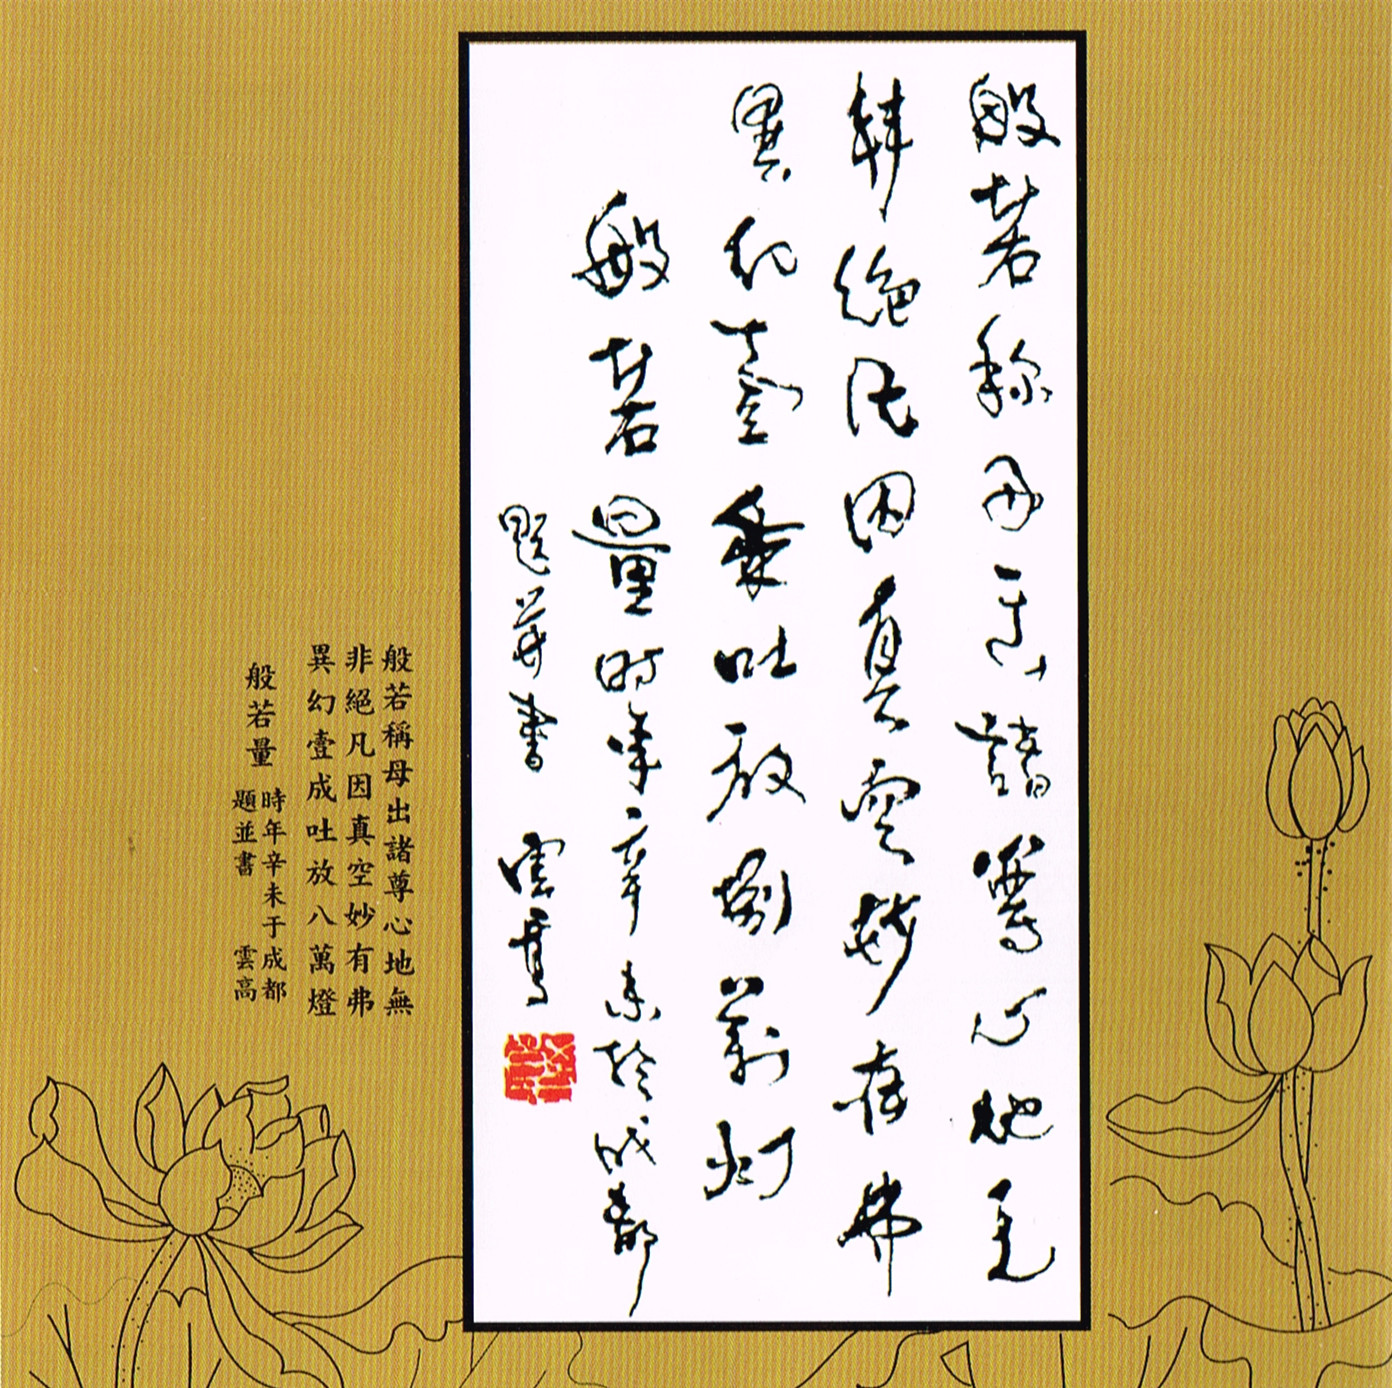 般若称母出諸尊心地无
非絕凡因真空妙有弗
異幻壹成吐放捌萬灯
般若量時年辛未於成都
題并書 雲高
般若稱母出諸尊心地無
非絕凡因真空妙有弗
異幻壹成吐放八萬燈
般若量
時年辛未于成都
題並書 雲高